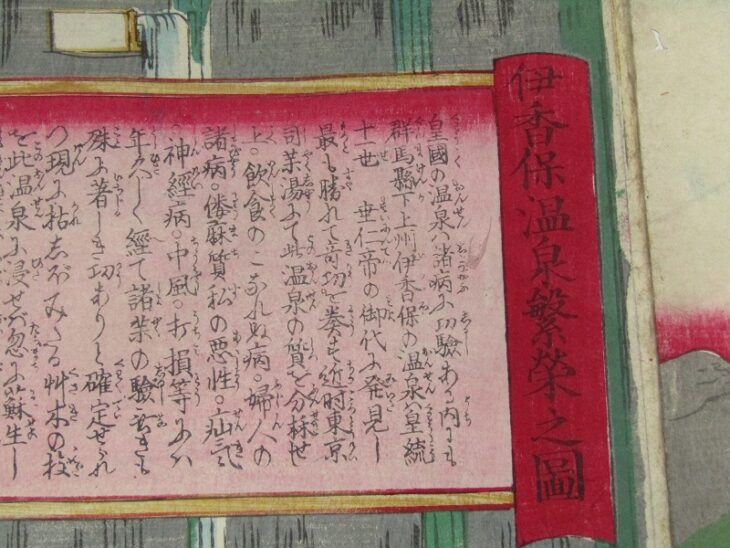 伊香保温泉繁榮之圖
皇國の温泉ハ諸病に功驗ある内にも
群馬縣下上州伊香保の温泉ハ皇統
十一世　垂仁帝の御代に発見し
最も勝れて奇功を奏す近時東京
司薬湯にて此温泉の質を分析せ
上。飲食のこなれぬ病。婦人の
諸病。僂麻質私の悪性。疝気
神經病。中風。打損等にハ
年久しく經て諸薬の驗なきも
殊に著しき功ありと確定せられ
つ現に枯しぼみたる艸木の枝
を此温泉に浸せバ忽に蘇生し